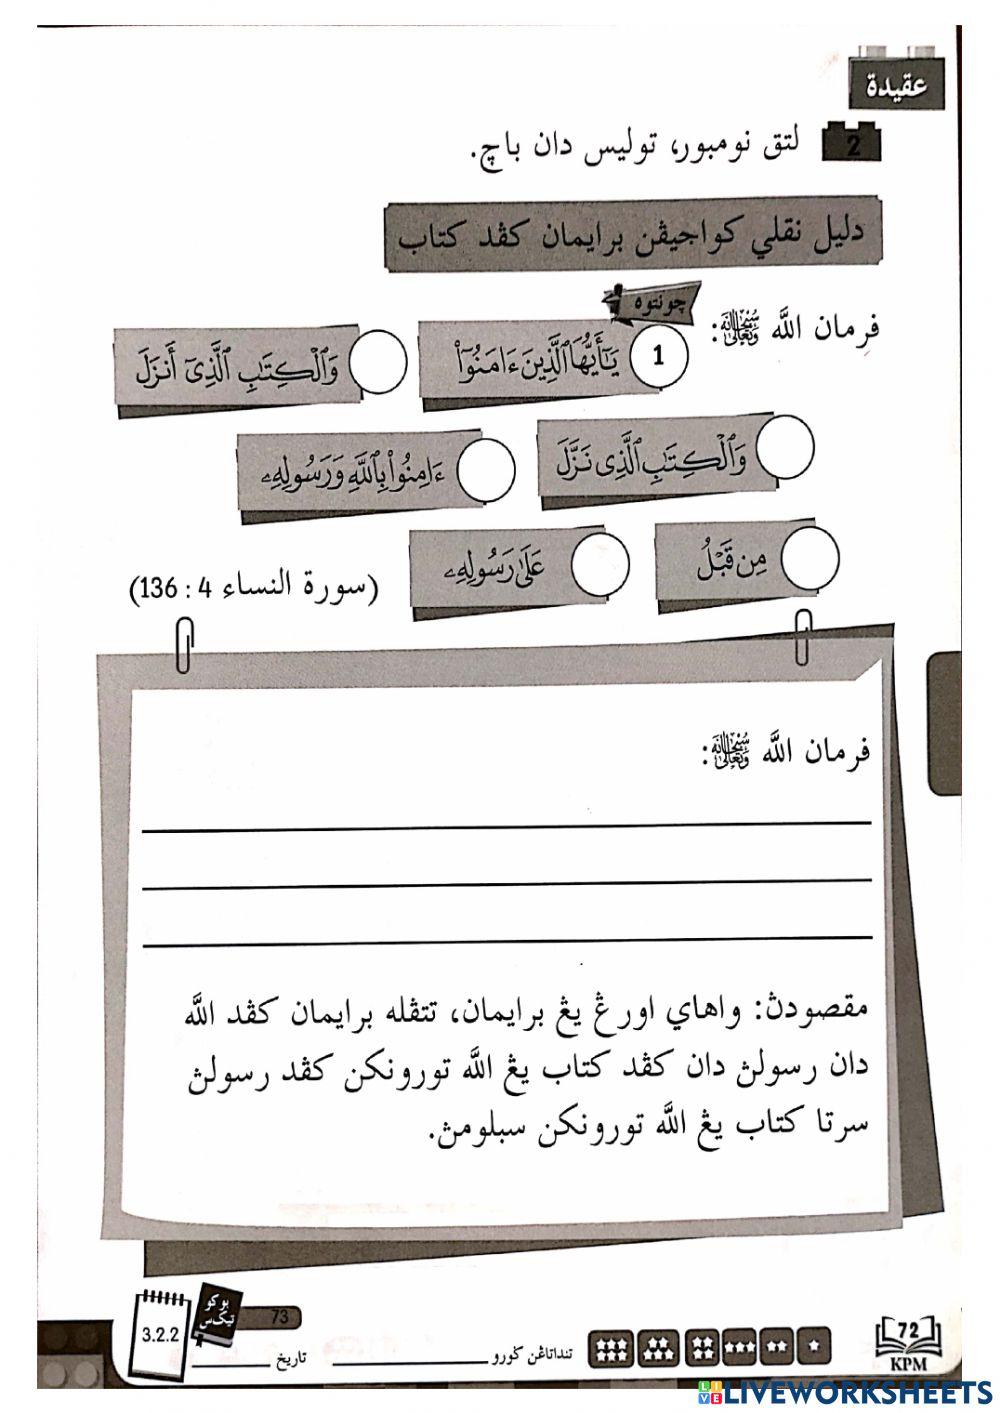 عقيدة
2 لتق نومبور، توليس دان باچ.
دليل نقلي كواجيڤن برايمان كڤد كتاب
فرمان الله ﷻ:
چونتوه
1 يَٰٓأَيُّهَا ٱلَّذِينَ ءَامَنُوٓا۟
وَٱلْكِتَٰبِ ٱلَّذِىٓ أَنزَلَ
وَٱلْكِتَٰبِ ٱلَّذِى نَزَّلَ
ءَامِنُوا۟ بِٱللَّهِ وَرَسُولِهِۦ
مِن قَبْلُ
عَلَىٰ رَسُولِهِۦ
(سورة النساء 4 : 136)
فرمان الله ﷻ:
مقصودڽ: واهاي اورڠ يڠ برايمان، تتڤله برايمان كڤد الله
دان رسولڽ دان كڤد كتاب يڠ الله تورونكن كڤد رسولڽ
سرتا كتاب يڠ الله تورونكن سبلومڽ.
72
KPM
تنداتاڠن ݢورو
تاريخ
73
بوكو
تيک س
3.2.2
LIVEWORKSHEETS